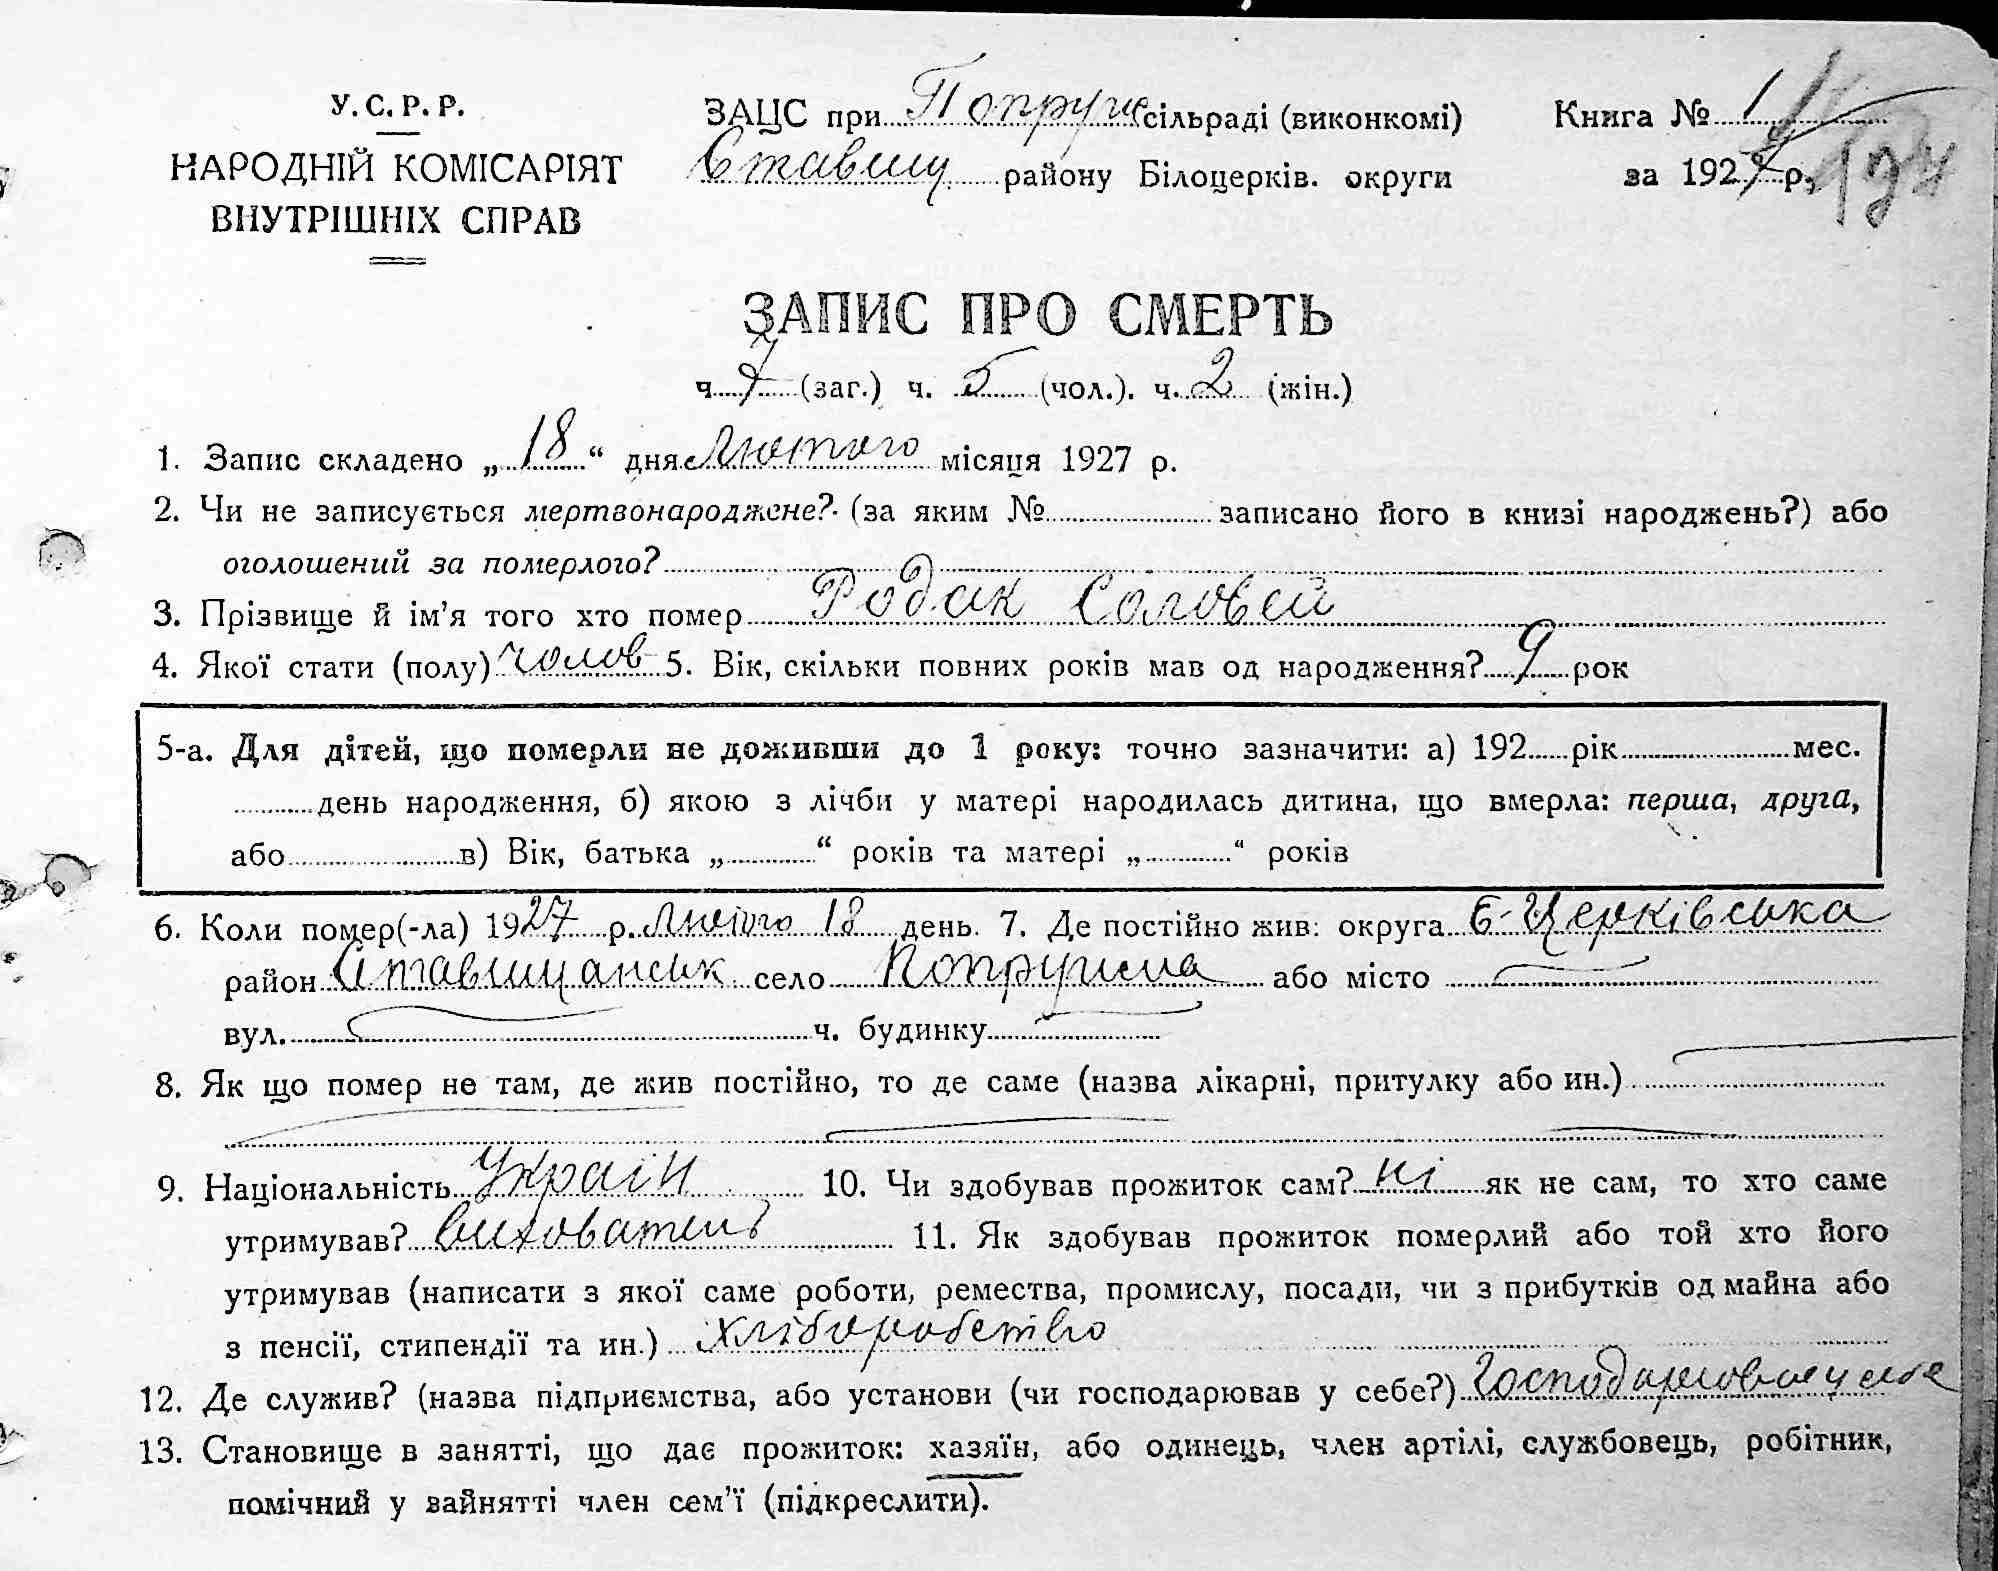 У.С.Р.Р.
НАРОДНІЙ КОМІСАРІЯТ
ВНУТРІШНІХ СПРАВ
ЗАЦС при Попруж сільраді (виконкомі)
Ставищ району Білоцерків. округи
Книга № 1
за 1927 р.
ЗАПИС ПРО СМЕРТЬ
ч. 7 (заг.) ч. 5 (чол.). ч. 2 (жін.)
1. Запис складено „ 18 “ дня Лютого місяця 1927 р.
2. Чи не записується мертвонароджене?· (за яким № записано його в книзі народжень?) або
оголошений за померлого?
3. Прізвище й ім’я того хто помер Родак Соловей
4. Якої стати (полу) чолов 5. Вік, скільки повних років мав од народження? 9 рок
5-а. Для дітей, що померли не доживши до 1 року: точно зазначити: а) 192 рік мес.
день народження, б) якою з лічби у матері народилась дитина, що вмерла: перша, друга,
або в) Вік, батька „ “ років та матері „ “ років
6. Коли помер(-ла) 1927 р. Лютого 18 день. 7. Де постійно жив: округа Б-Церківська
район Ставищанськ село Попружна або місто
вул. ч. будинку
8. Як що помер не там, де жив постійно, то де саме (назва лікарні, притулку або ин.)
9. Національність Україн 10. Чи здобував прожиток сам? ні як не сам, то хто саме
утримував? вихователь 11. Як здобував прожиток померлий або той хто його
утримував (написати з якої саме роботи, ремества, промислу, посади, чи з прибутків од майна або
з пенсії, стипендії та ин.) хліборобство
12. Де служив? (назва підприємства, або установи (чи господарював у себе?)
13. Становище в занятті, що дає прожиток: хазяїн, або одинець, член артілі, службовець, робітник,
помічний у зайнятті член сем’ї (підкреслити).